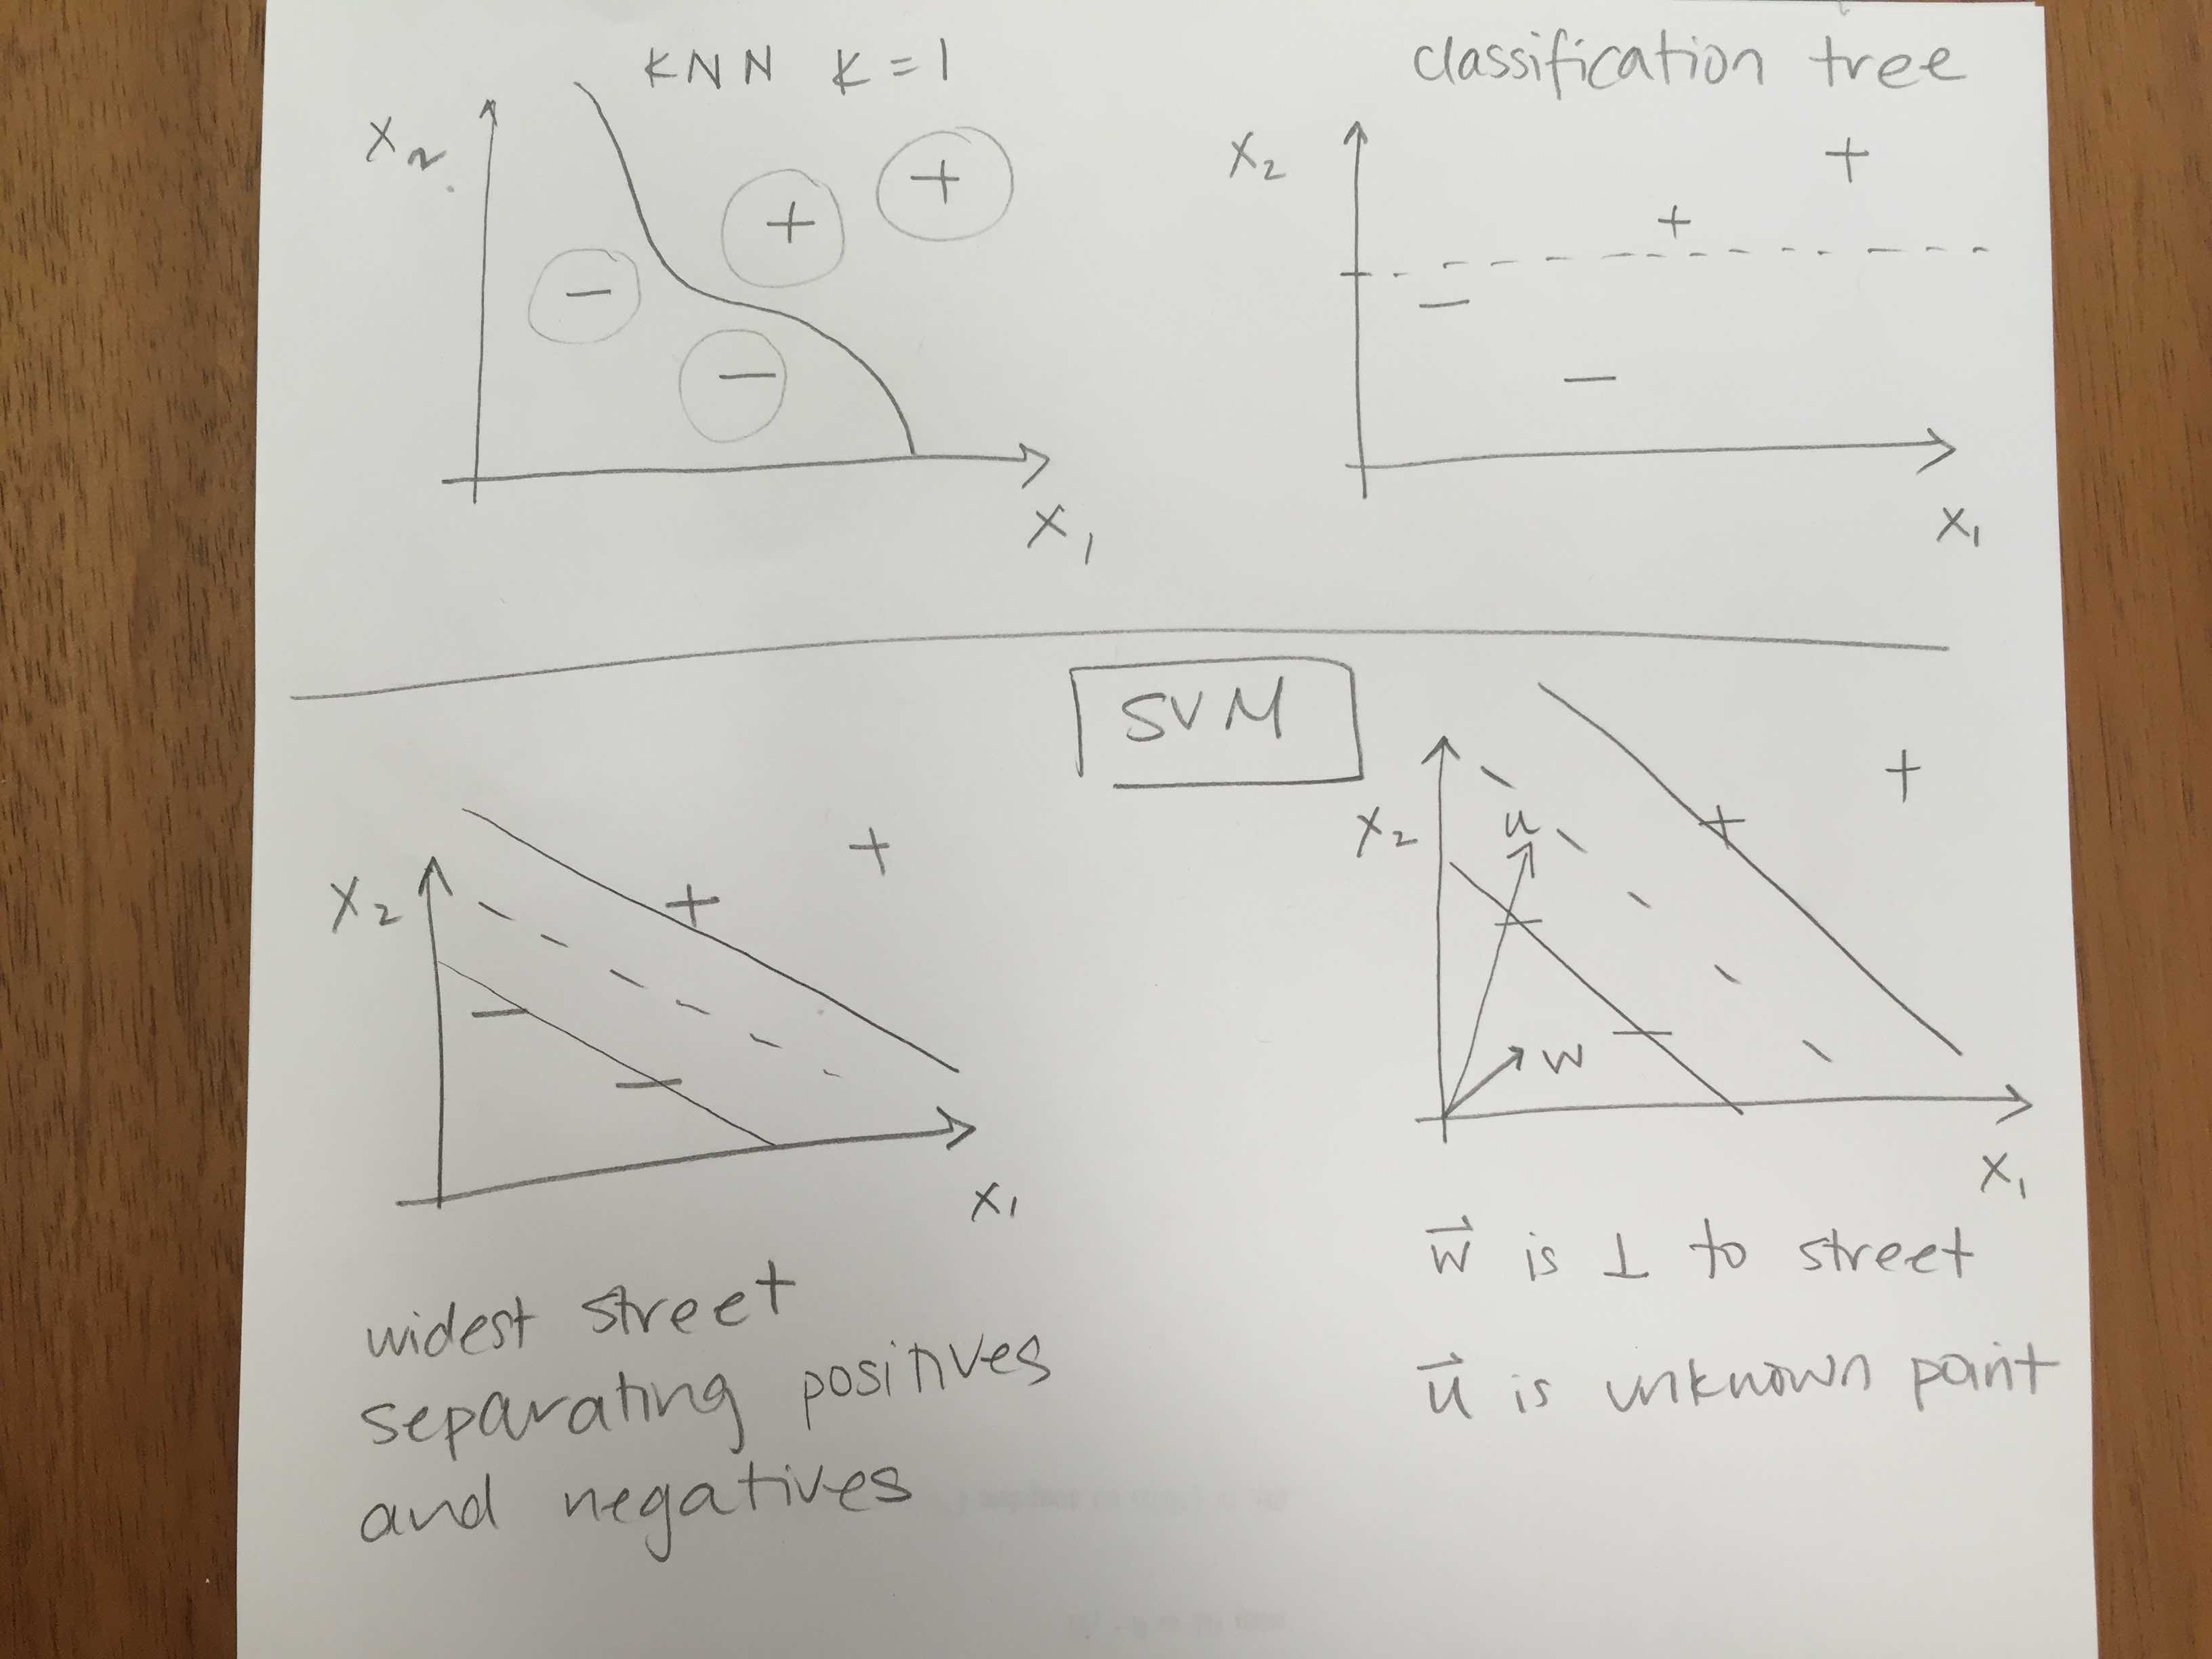 KNN K=1
X2
+ +
−
−
X1
classification tree
X2
+
+
−
−
X1
SVM
X2
+
+
−
−
X1
widest street
separating positives
and negatives
X2
+
u
+
−
−
w
X1
w⃗ is ⊥ to street
u⃗ is unknown point